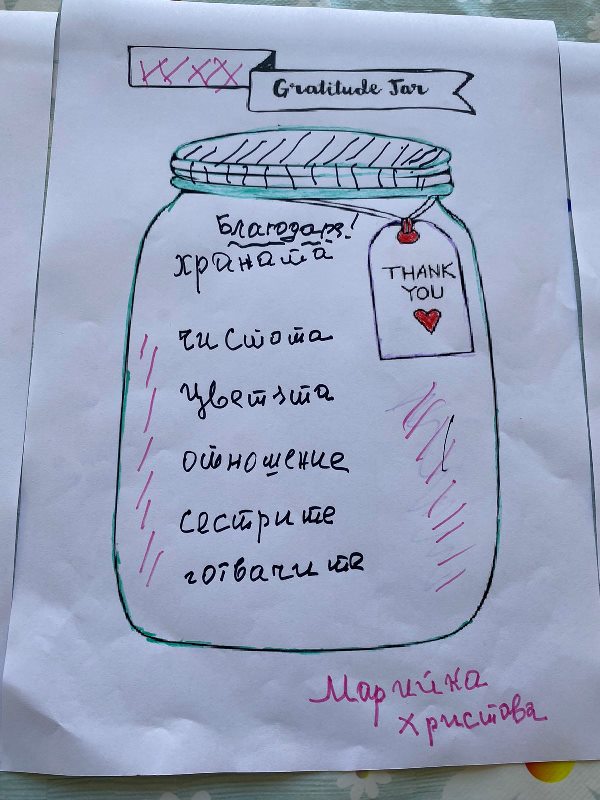 Gratitude Jar
Благодаря!
храната
THANK
YOU
чистота
цветята
отношение
сестрите
готвачите
Марийка
Христова